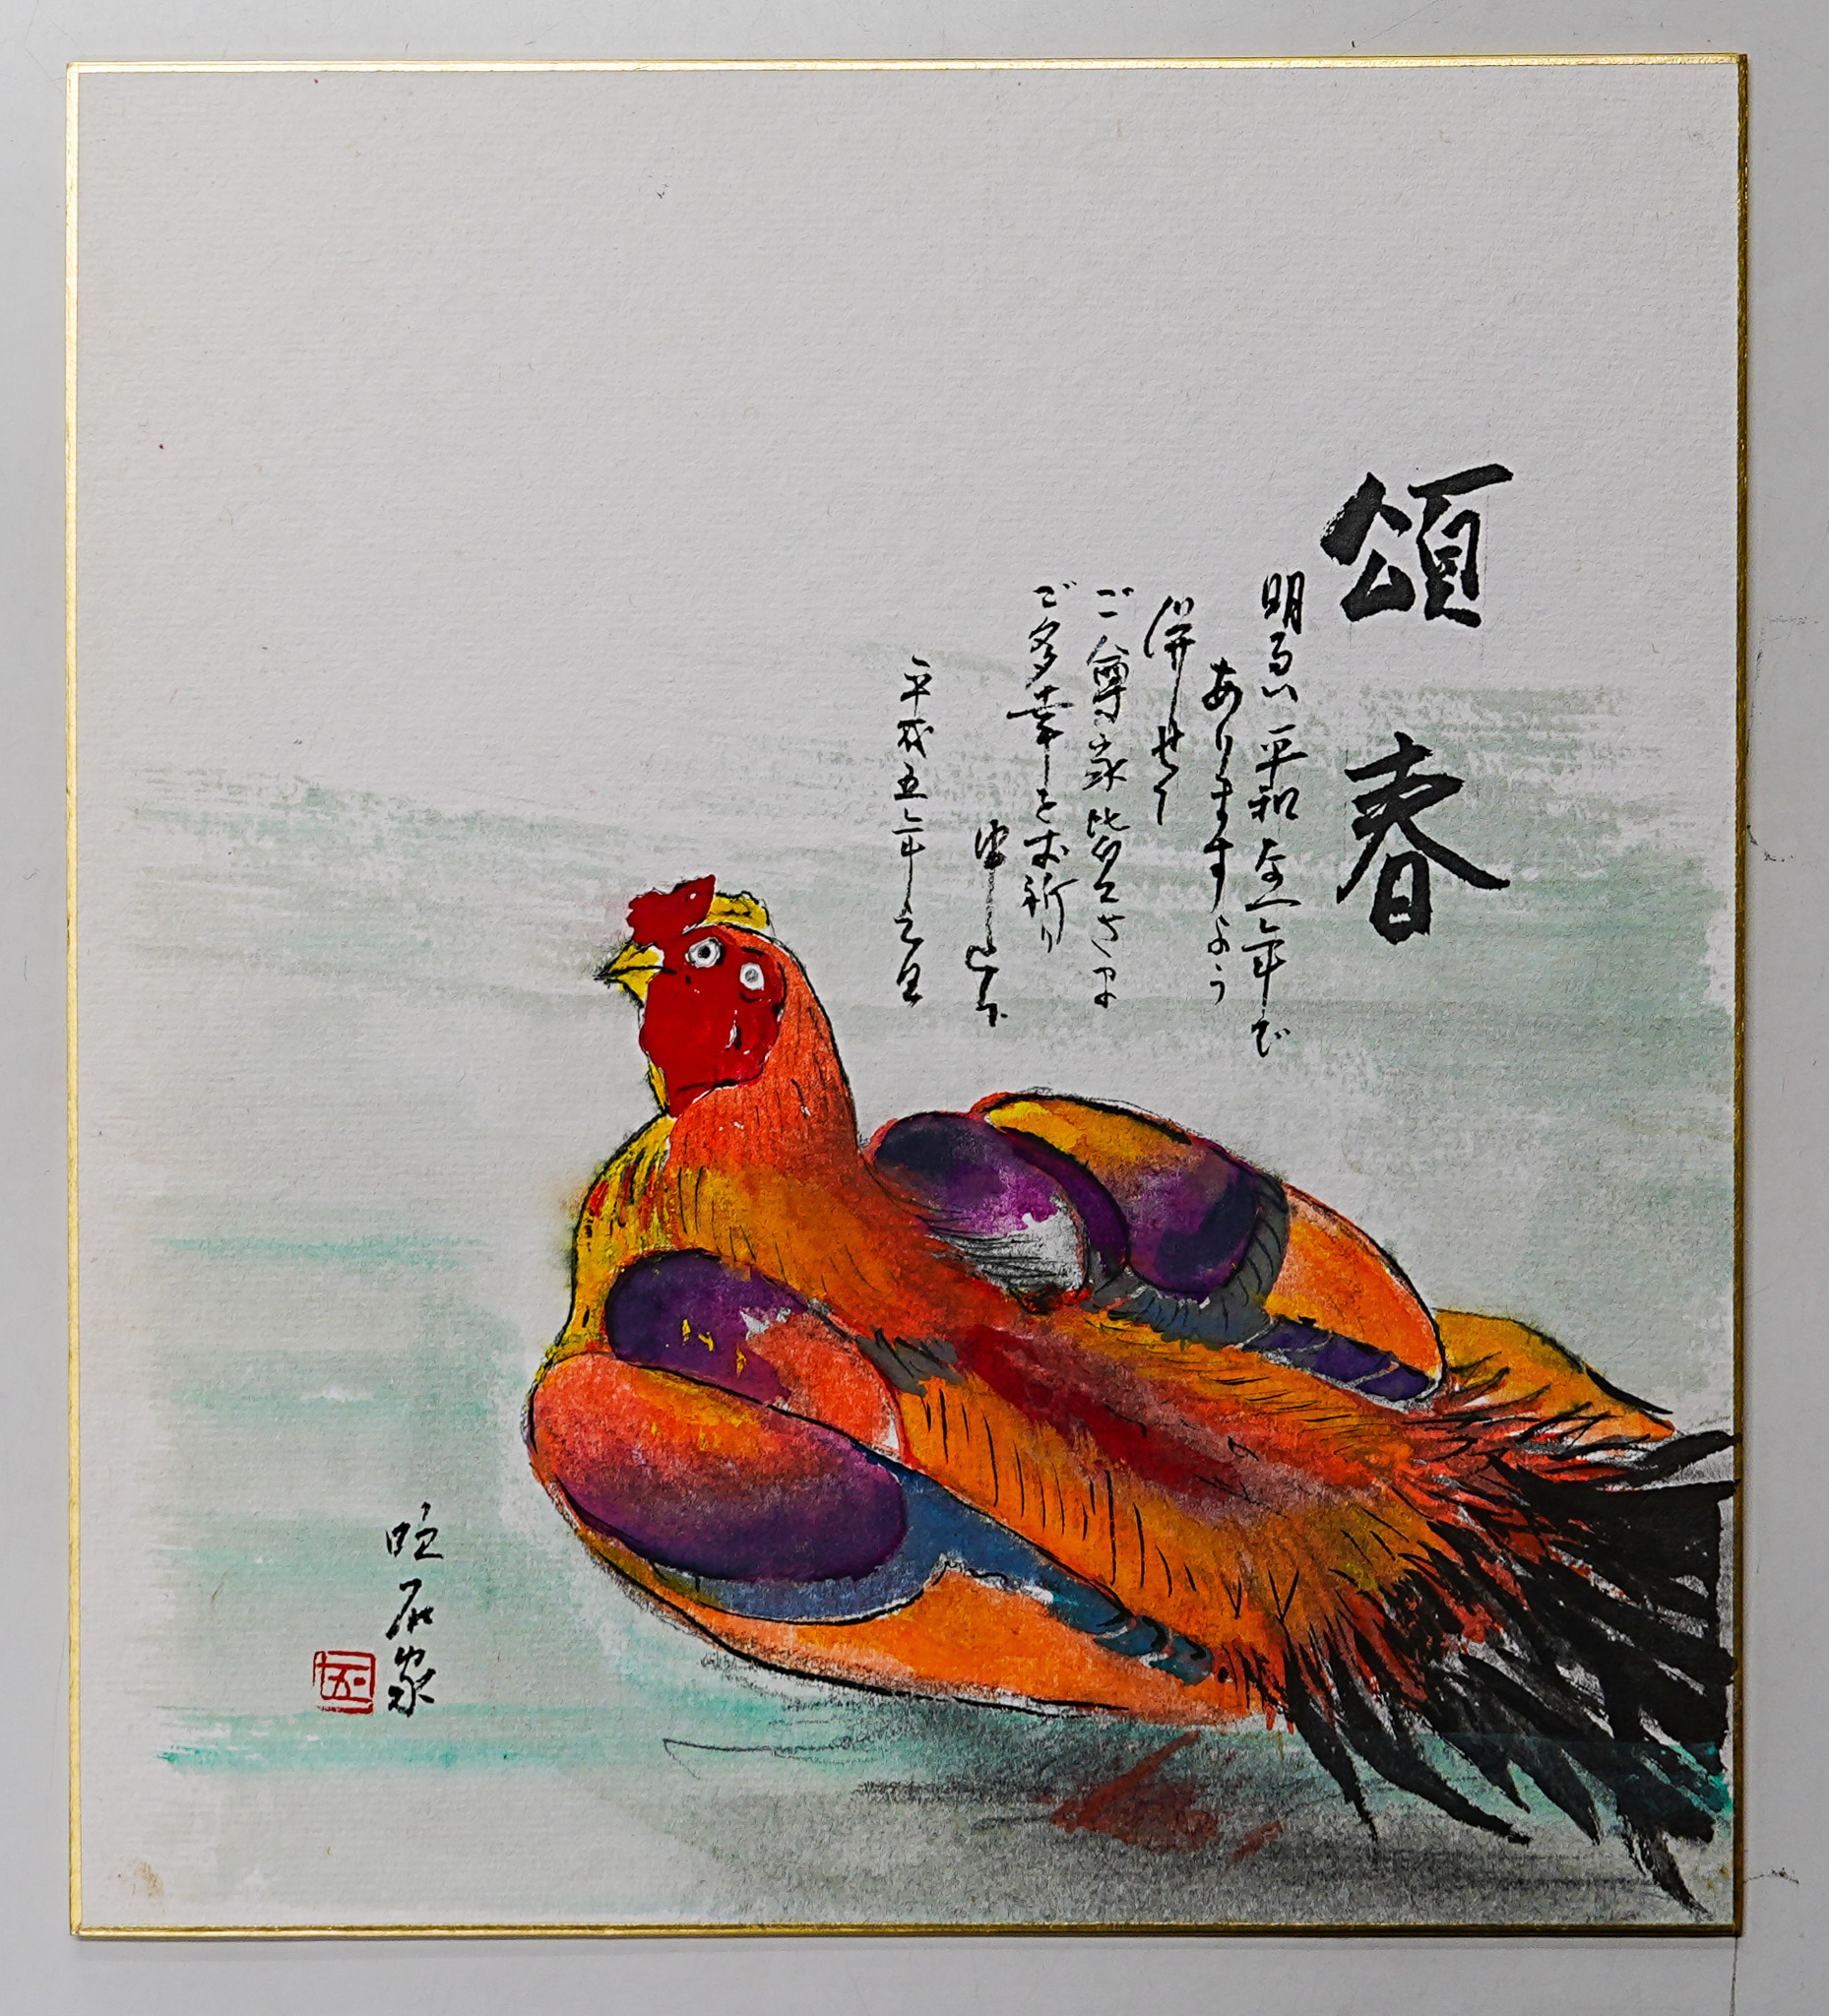 頌春
明るい平和な一年で
ありますよう
併せて
ご尊家皆々さま
ご多幸をお祈り
申し上げ
平成五年元旦